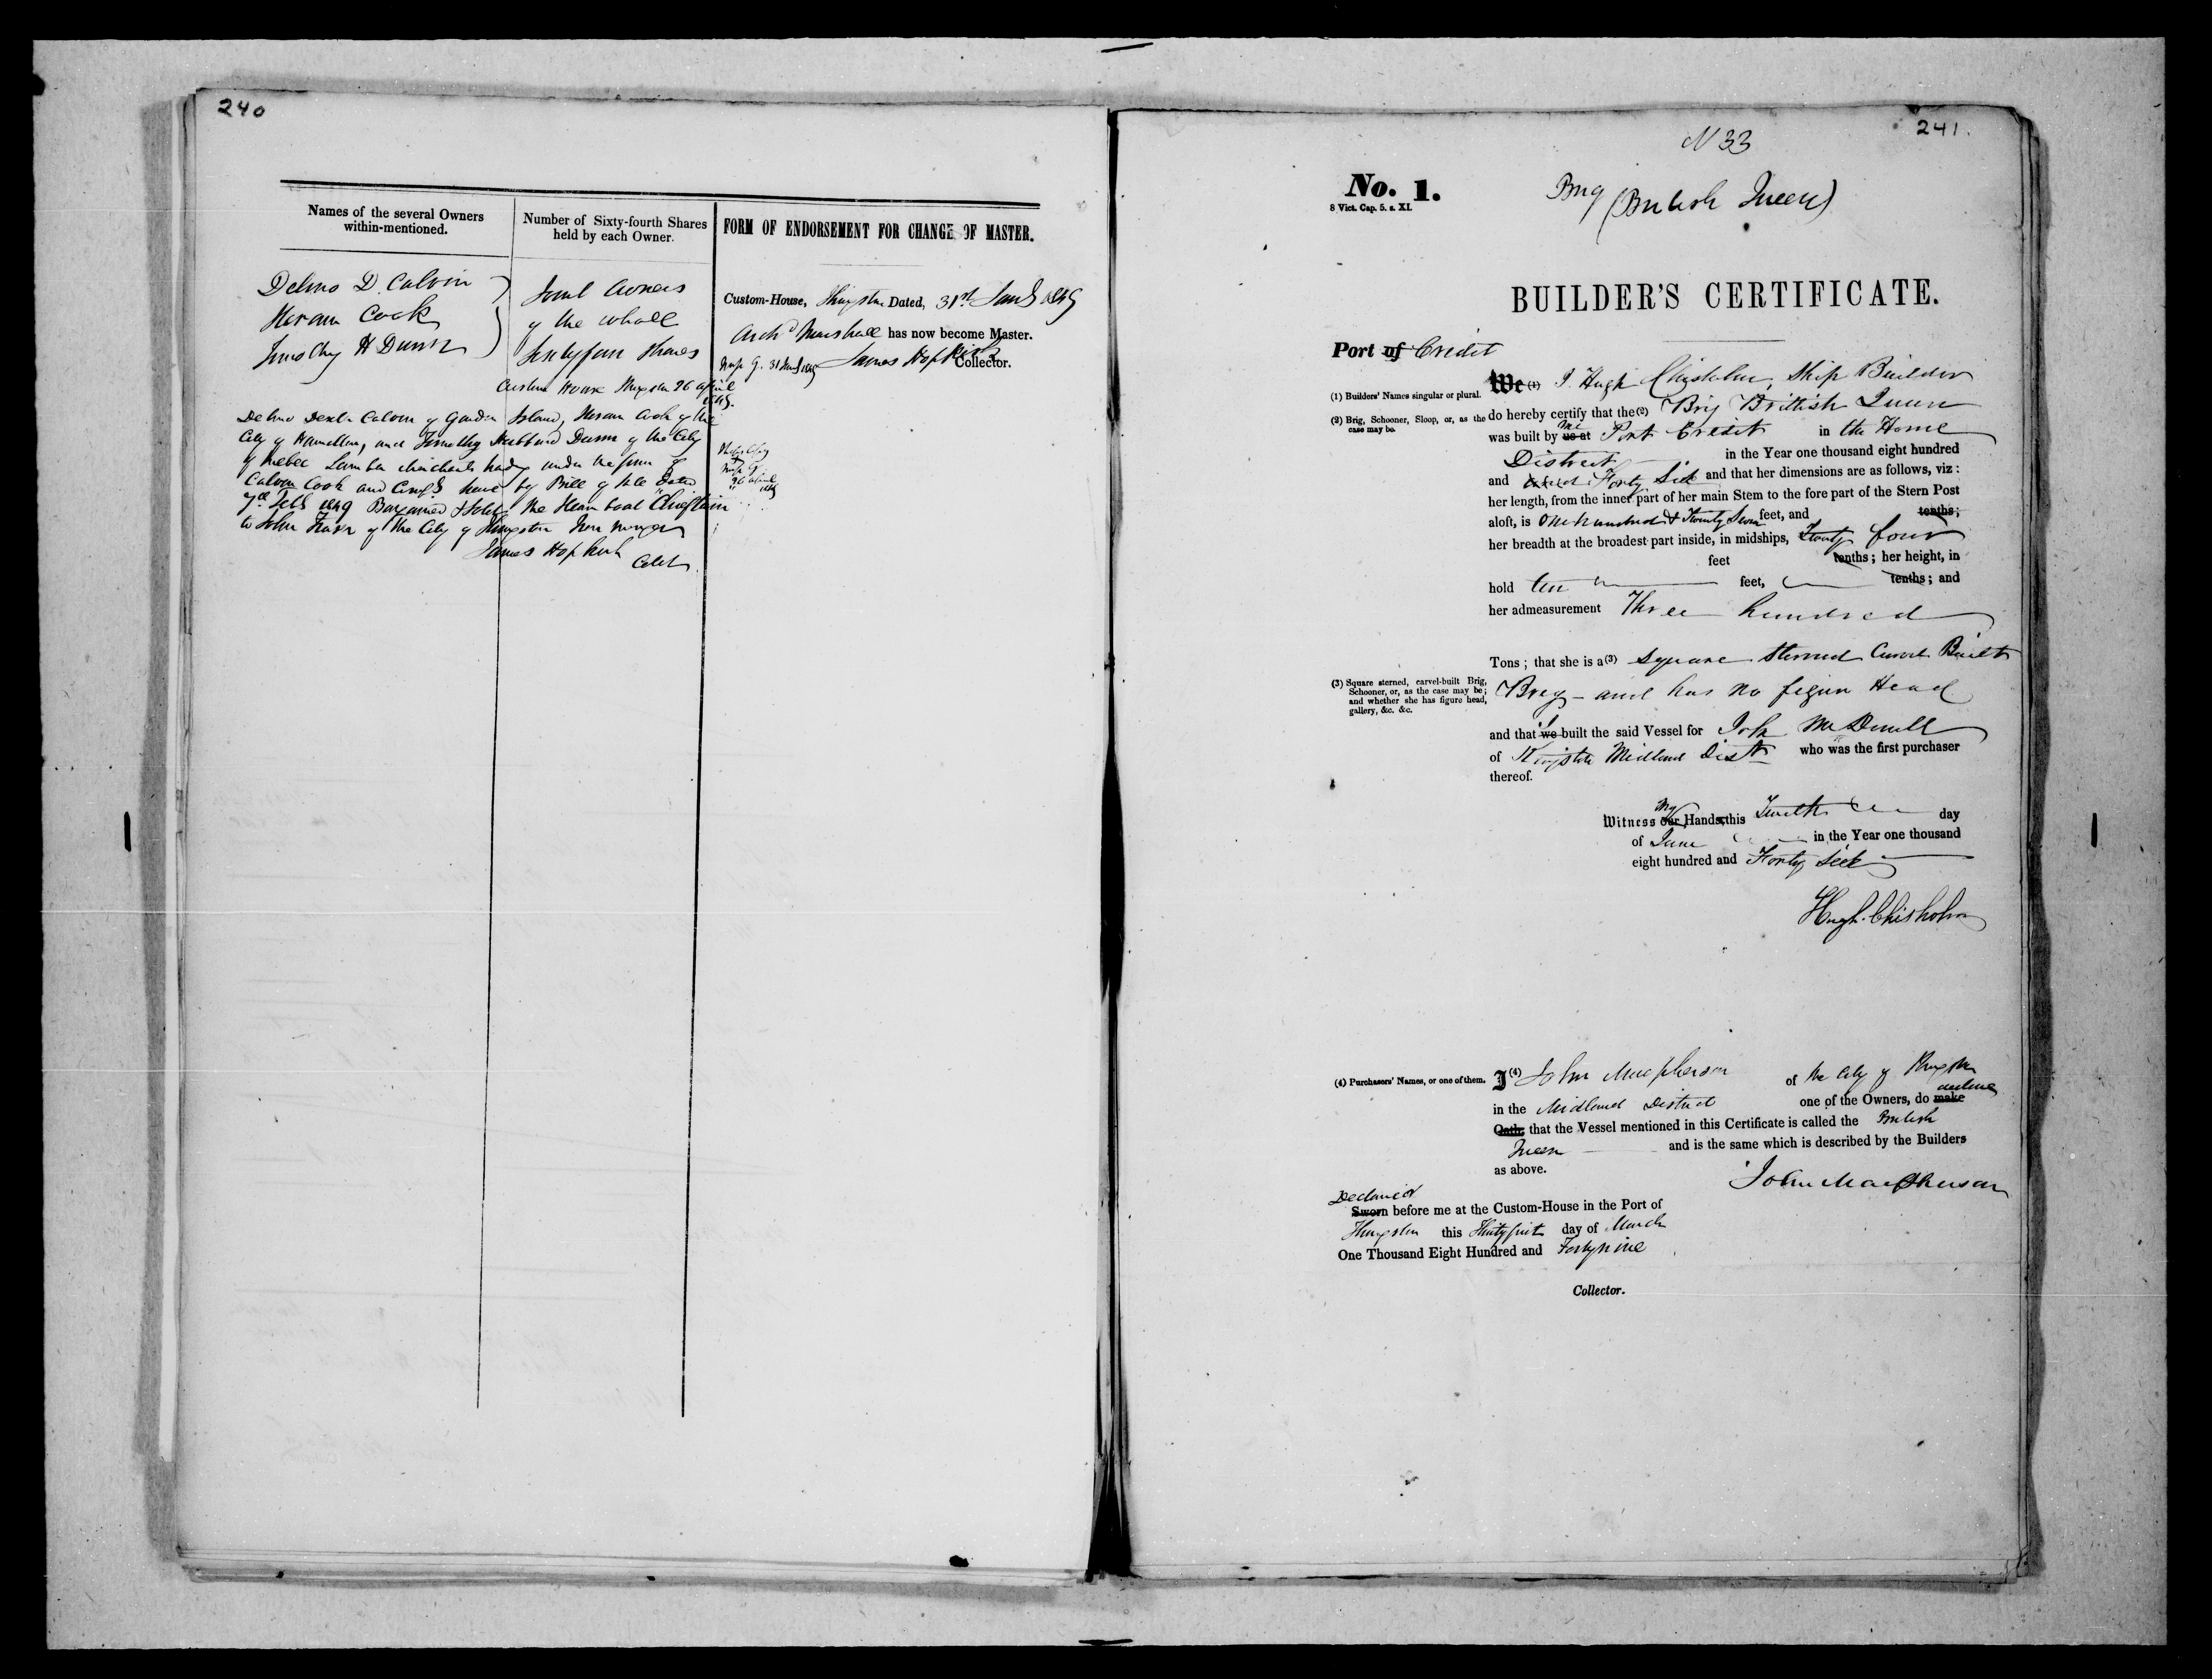 240
Names of the several Owners
within-mentioned.
Number of Sixty-fourth Shares
held by each Owner.
FORM OF ENDORSEMENT FOR CHANGE OF MASTER.
Delino D. Calvin
Hiram Cook
Timothy H Dunn
Joint Owners
of the whole
Sixtyfour Shares
Custom-House, Kingston Dated, 31st 1849
Archd Marshall has now become Master.
31 1849 James Hopkirk
Collector.
Custom House Kingston 26 april
1849.
Delino Dexter Calvin of Garden Island, Hiram Cook of the
City of Hamilton, and Timothy Hubbard Dunn of the City
of Quebec Lumber Merchants trading under the firm of
Calvin Cook and have by Bill of Sale Dated
7th Feb 1849 Bargained & Sold the Steam boat "Chieftain
to John of the City of Kingston
James Hopkirk
Collr
26 april
1849
241.
N 33
No. 1.
8 Vict. Cap. 5. s. XI.
Brig (British Queen)
BUILDER'S CERTIFICATE.
Port of Credit
We (1) I. Hugh Chisholm, Ship Builder
(1) Builders' Names singular or plural.
(2) Brig, Schooner, Sloop, or, as the
case may be.
do hereby certify that the (2) Brig Brittish Queen
was built by us at me Port Credit in the Home
District in the Year one thousand eight hundred
and Forty Sick and that her dimensions are as follows, viz :
her length, from the inner part of her main Stem to the fore part of the Stern Post
aloft, is One hundred & Twenty Seven feet, and tenths;
her breadth at the broadest part inside, in midships, Twenty four
feet tenths; her height, in
hold ten feet, tenths; and
her admeasurement Three hundred
Tons; that she is a (3) Square Sterned Carvel Built
(3) Square sterned, carvel-built Brig,
Schooner, or, as the case may be;
and whether she has figure head,
gallery, &c. &c.
Brig - and has no figure Head
and that we I built the said Vessel for
of Kingston Midland Dist who was the first purchaser
thereof.
Witness our My Hands, this Twelth day
of June in the Year one thousand
eight hundred and Forty Sick
Hugh Chisholm
(4) Purchasers' Names, or one of them.
I (4) John Macpherson of the City of Kingston
in the Midland District one of the Owners, do make declare
Oath, that the Vessel mentioned in this Certificate is called the British
Queen and is the same which is described by the Builders
as above.
John Macpherson
Declared
Sworn before me at the Custom-House in the Port of
Kingston this Thirtyfirst day of March
One Thousand Eight Hundred and Fortynine
Collector.